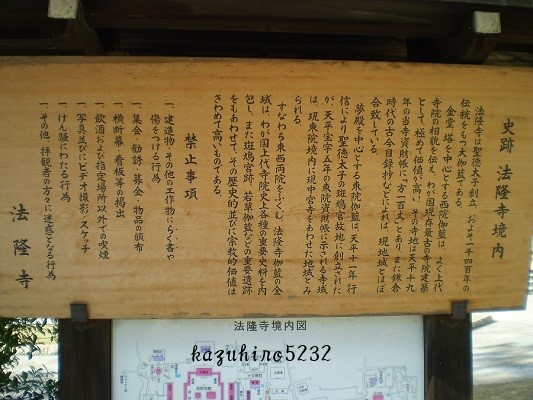 史跡 法隆寺境内
法隆寺は聖徳太子創立、およそ一千四百年の
伝統をもつ大伽藍である。
金堂・塔を中心とする西院伽藍は、よく上代
寺院の相貌を伝え、わが国現存最古の寺院建築
として極めて価値の高い、その寺地は天平十九
年の当寺資財帳に「方一百丈」とあり、また鎌倉
時代の古今目録抄などによれば、現地域とほぼ
合致している。
夢殿を中心とする東院伽藍は、天平十一年、行
信により聖徳太子の斑鳩宮故地に創立された
が、天平宝字五年の東院資財帳に示される寺域
は、現東院境内に現中宮寺をあわせた地域とみ
られる。
すなわち東西両院をふくむ、法隆寺伽藍の全
域は、わが国上代寺院史上各種の重要史料を内
包し、また斑鳩宮跡、若草伽藍などの重要遺跡
をもあわせて、その歴史的並びに宗教的価値は
きわめて高いものである。
禁止事項
一、建造物・その他の工作物にらく書や
傷をつける行為
一、集会・勧誘・募金・物品の頒布
一、横断幕・看板等の掲出
一、飲酒および指定場所以外での喫煙
一、写真並びにビデオ撮影・スケッチ
一、けん騒にわたる行為
一、その他、拝観者の方々に迷惑となる行為
法隆寺
法隆寺境内図
kazuhiro5232